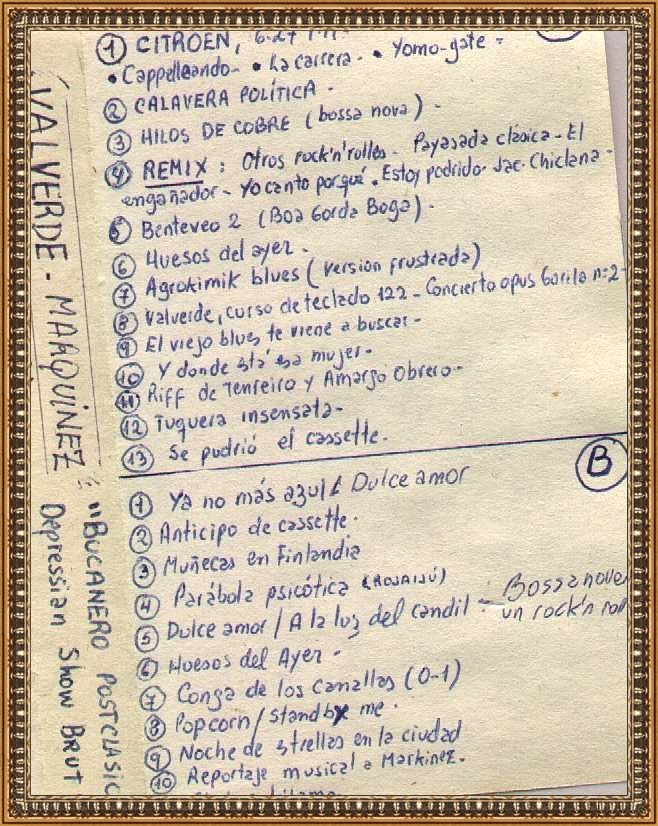 ① CITROEN,
• Cappelleando - • La carrera - • Yomo-gate =
② CALAVERA POLÍTICA -
③ HILOS DE COBRE (bossa nova) -
④ REMIX : Otros rock'n'rolles - Payasada clásica - El
engañador - Yo canto porqué. Estoy podrido - Jac. Chiclana -
⑤ Benteveo 2 (Boa Gorda Boga) -
⑥ Huesos del ayer -
⑦ Agrokimik blues (version frustrada)
⑧ Valverde, curso de teclado 122 - Concierto opus Gorila n=2 -
⑨ El viejo blues te viene a buscar -
⑩ Y donde stá esa mujer -
⑪ Riff de Tenreiro y Amargo Obrero -
⑫ Tuguera insensata -
⑬ Se pudrió el cassette.
B
① Ya no más azul / Dulce amor
② Anticipo de cassette.
③ Muñecas en Finlandia
④ Parábola psicótica (ROJAIJÚ)
⑤ Dulce amor / A la luz del candil - Bossa nova
un rock'n roll
⑥ Huesos del Ayer -
⑦ Conga de los canallas (0-1)
⑧ Popcorn / stand by me.
⑨ Noche de strellas en la ciudad
⑩ Reportaje musical a Markinez.
VALVERDE - MARQUINEZ :
"BUCANERO POSTCLASIC
Depressian Show BRUT